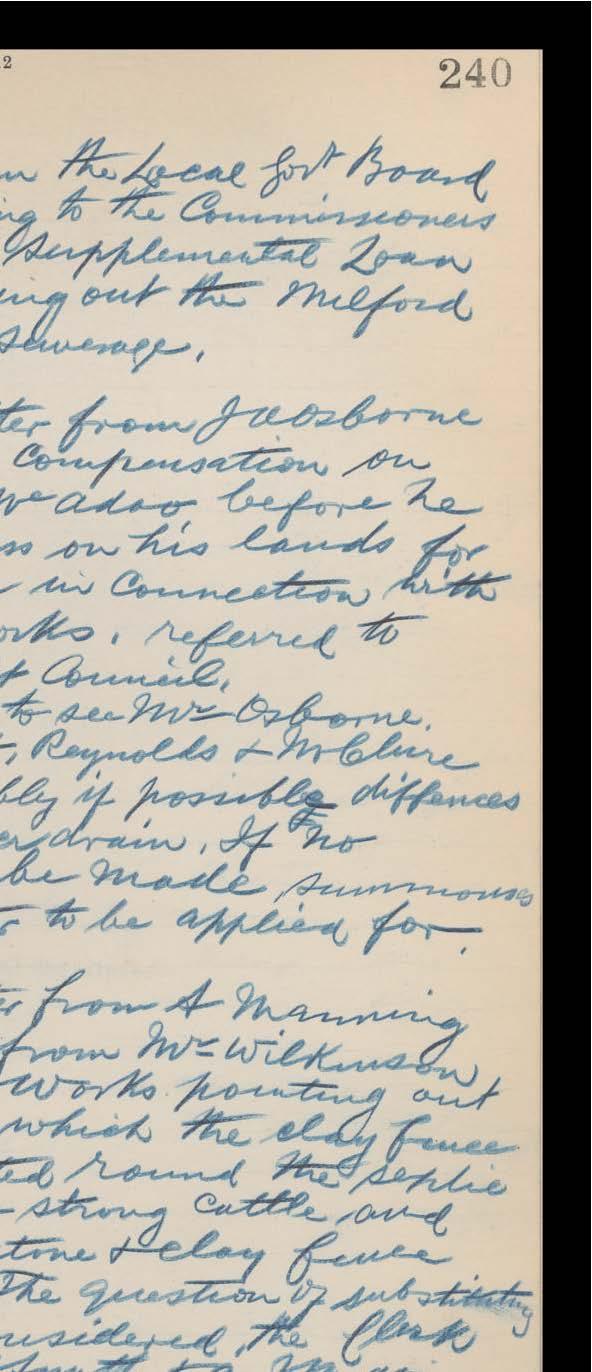 12
240
the Local Govt Board
ing to the Commissioners
Supplemental Loan
ing out the Milford
Sewerage.
ter from J A Osborne
Compensation on
Mc Adoo before he
ss on his lands for
in Connection with
orks. referred to
t Council.
to see Mr Osborne.
Reynolds & McClure
bly if possible diffences
er drain. If no
be made summonses
to be applied for.
ter from A Manning
from Mr Wilkinson
Works pointing out
which the clay fence
ted round the septic
strong cattle and
tone & clay fence
The question of substituting
nsidered, the Clerk